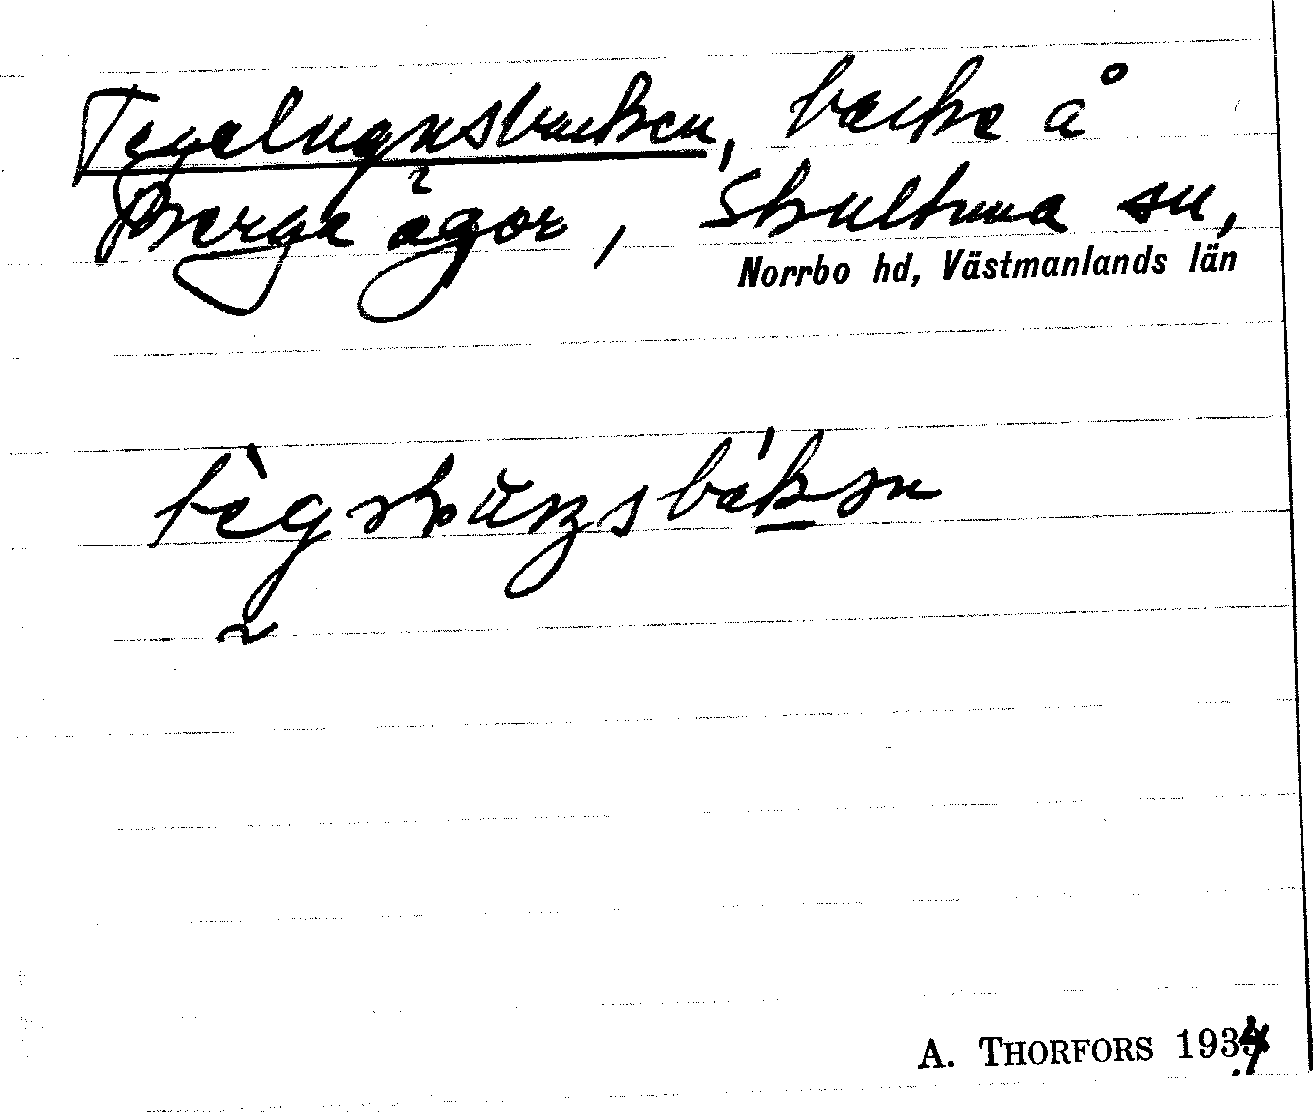 Tegelugnsbacken, backe å
Berga ägor, Skultuna sn,
Norrbo hd, Västmanlands län
A. THORFORS 1934